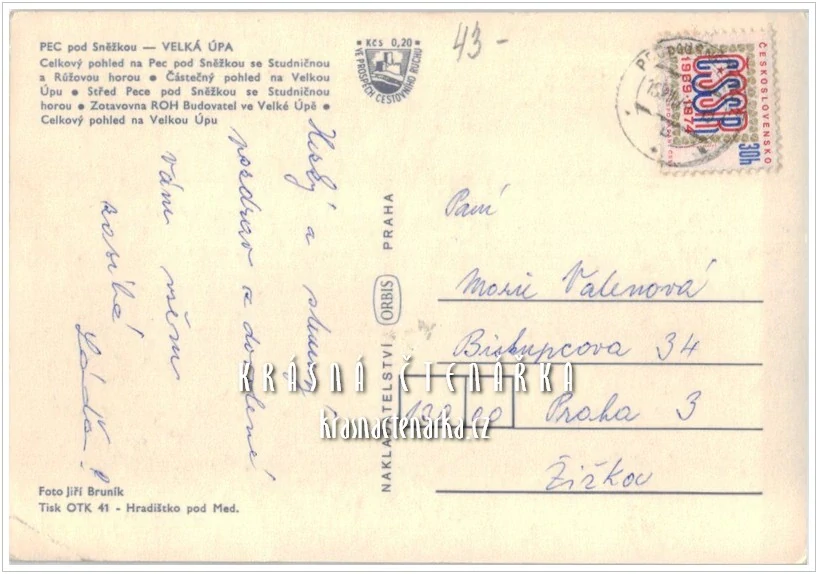 PEC pod Sněžkou — VELKÁ ÚPA
Celkový pohled na Pec pod Sněžkou se Studničnou
a Růžovou horou • Částečný pohled na Velkou
Úpu • Střed Pece pod Sněžkou se Studničnou
horou • Zotavovna ROH Budovatel ve Velké Úpě •
Celkový pohled na Velkou Úpu
Kčs 0,20
VE PROSPĚCH CESTOVNÍHO RUCHU
43-
ČESKOSLOVENSKO
ČSSR
1969-1974
30h
Hezký a slunný
pozdrav z dovolené!
Vám všem
posílá
Láďa.
NAKLADATELSTVÍ ORBIS PRAHA
Paní
Marie Valenová
Biskupcova 34
130 00 Praha 3
Žižkov
KRÁSNÁ ČTENÁŘKA
krasnactenarka.cz
Foto Jiří Bruník
Tisk OTK 41 - Hradištko pod Med.